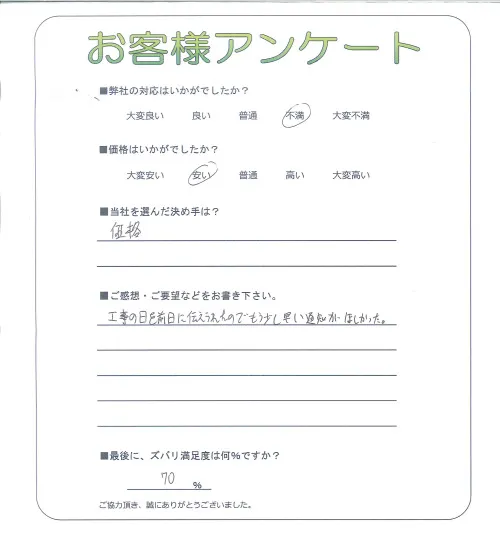 お客様アンケート
■弊社の対応はいかがでしたか?
大変良い 良い 普通 不満 大変不満
■価格はいかがでしたか?
大変安い 安い 普通 高い 大変高い
■当社を選んだ決め手は?
価格
■ご感想・ご要望などをお書き下さい。
工事の日を前日に伝えられたのでもう少し早い通知がほしかった。
■最後に、ズバリ満足度は何%ですか?
70 %
ご協力頂き、誠にありがとうございました。